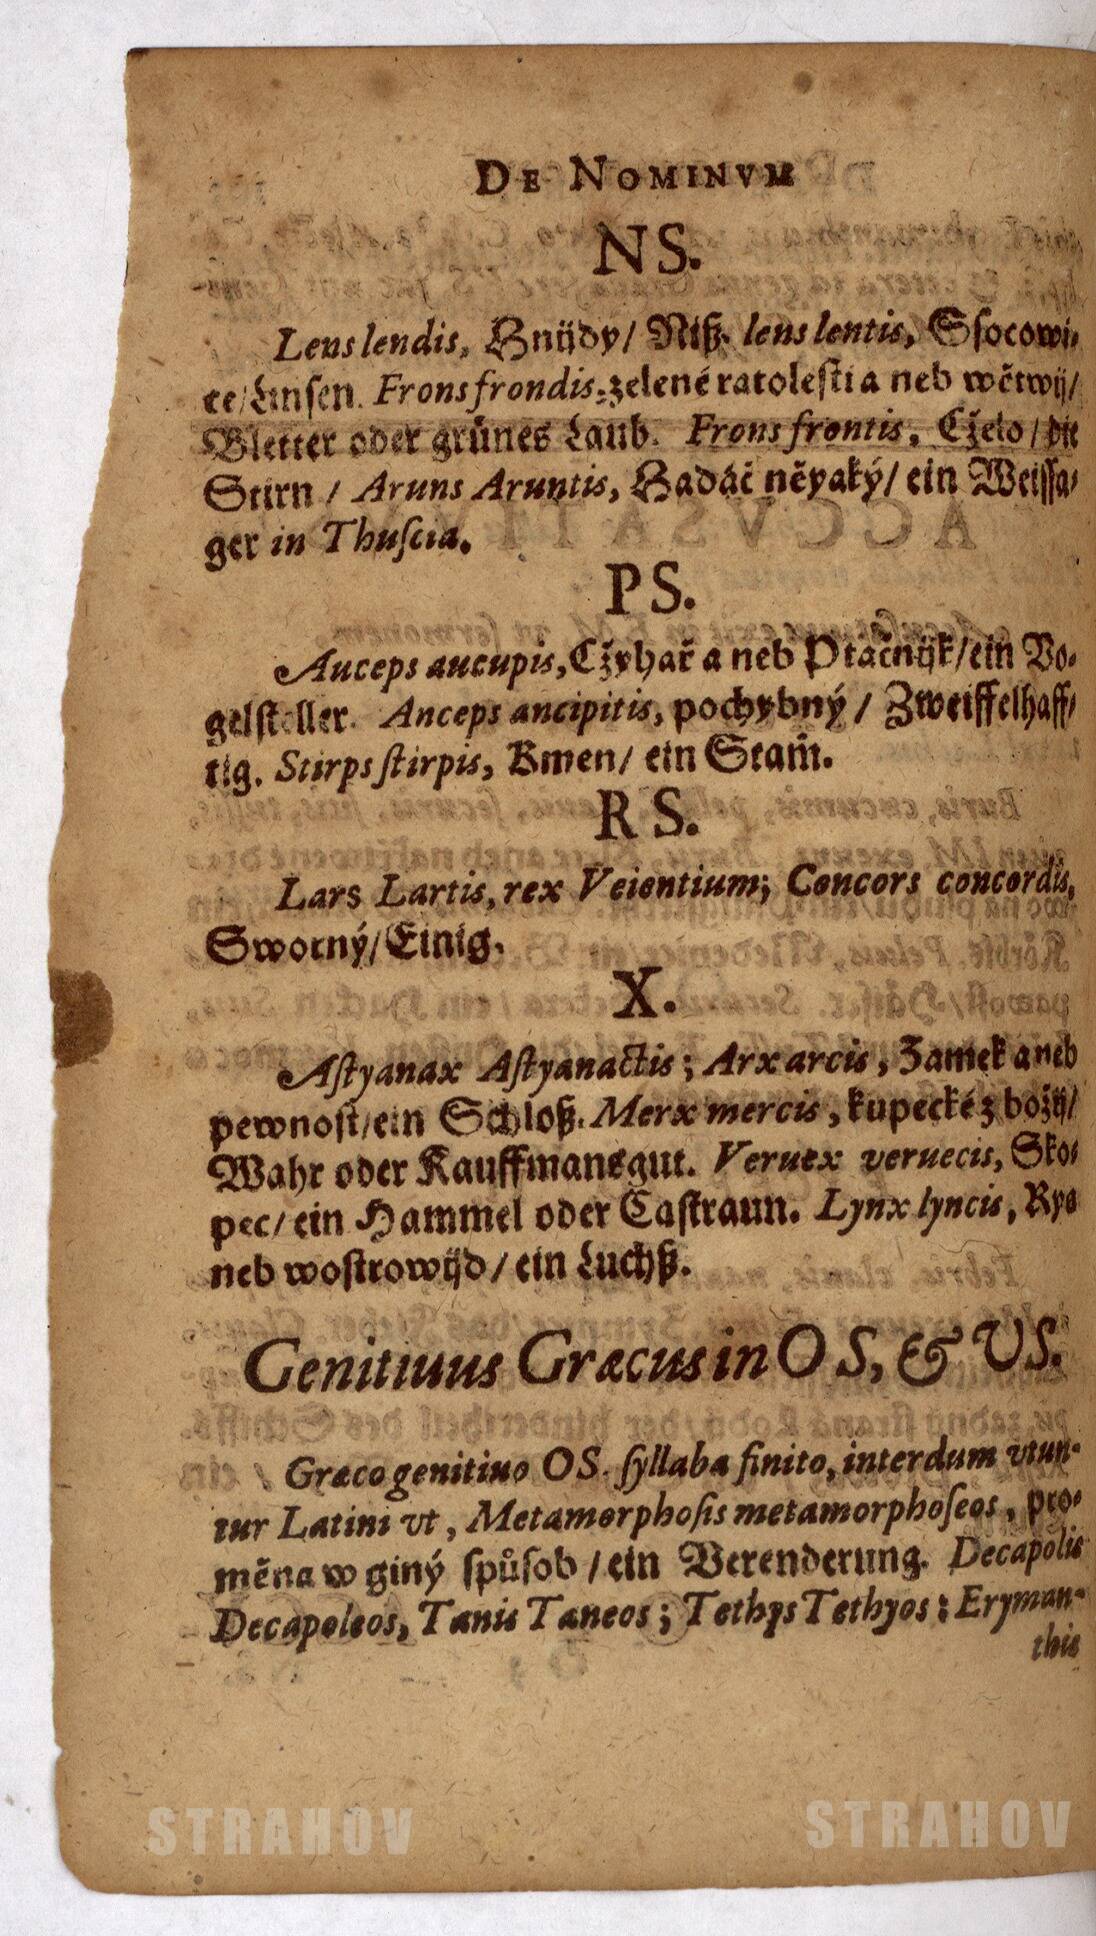 DE NOMINVM
NS.
Lens lendis, Hnijdy/ Niß. lens lentis, Ssocowi-
ce/Linsen. Frons frondis, zelené ratolesti a neb wětwij/
Bletter oder grůnes Laub. Frons frontis, Cželo/die
Stirn / Aruns Aruntis, Hadáč něyaký/ ein Weissa-
ger in Thuſcia.
PS.
Auceps aucupis, Cžyhař a neb Ptačnijk/ein Vo-
gelsteller. Anceps ancipitis, pochybný / Zweiffelhaff-
tig. Stirps ſtirpis, Kmen/ ein Stam̃.
RS.
Lars Lartis, rex Veientium; Concors concordis,
Sworný/Einig.
X.
Aſtyanax Aſtyanactis; Arx arcis, Zamek aneb
pewnost/ein Schloß. Merx mercis, kupecké zbožij/
Wahr oder Kauffmansgut. Veruex veruecis, Sko-
pec/ ein Hammel oder Castraun. Lynx lyncis, Rys a
neb wostrowijd/ ein Luchß.
Genitiuus Græcus in OS, & US.
Græco genitiuo OS. ſyllaba finito, interdum vtun-
tur Latini vt, Metamorphoſis metamorphoſeos, pro-
měna w giný spůsob /ein Verenderung. Decapolis
Decapoleos, Tanis Taneos; Tethys Tethyos; Eryman-
this
STRAHOV STRAHOV